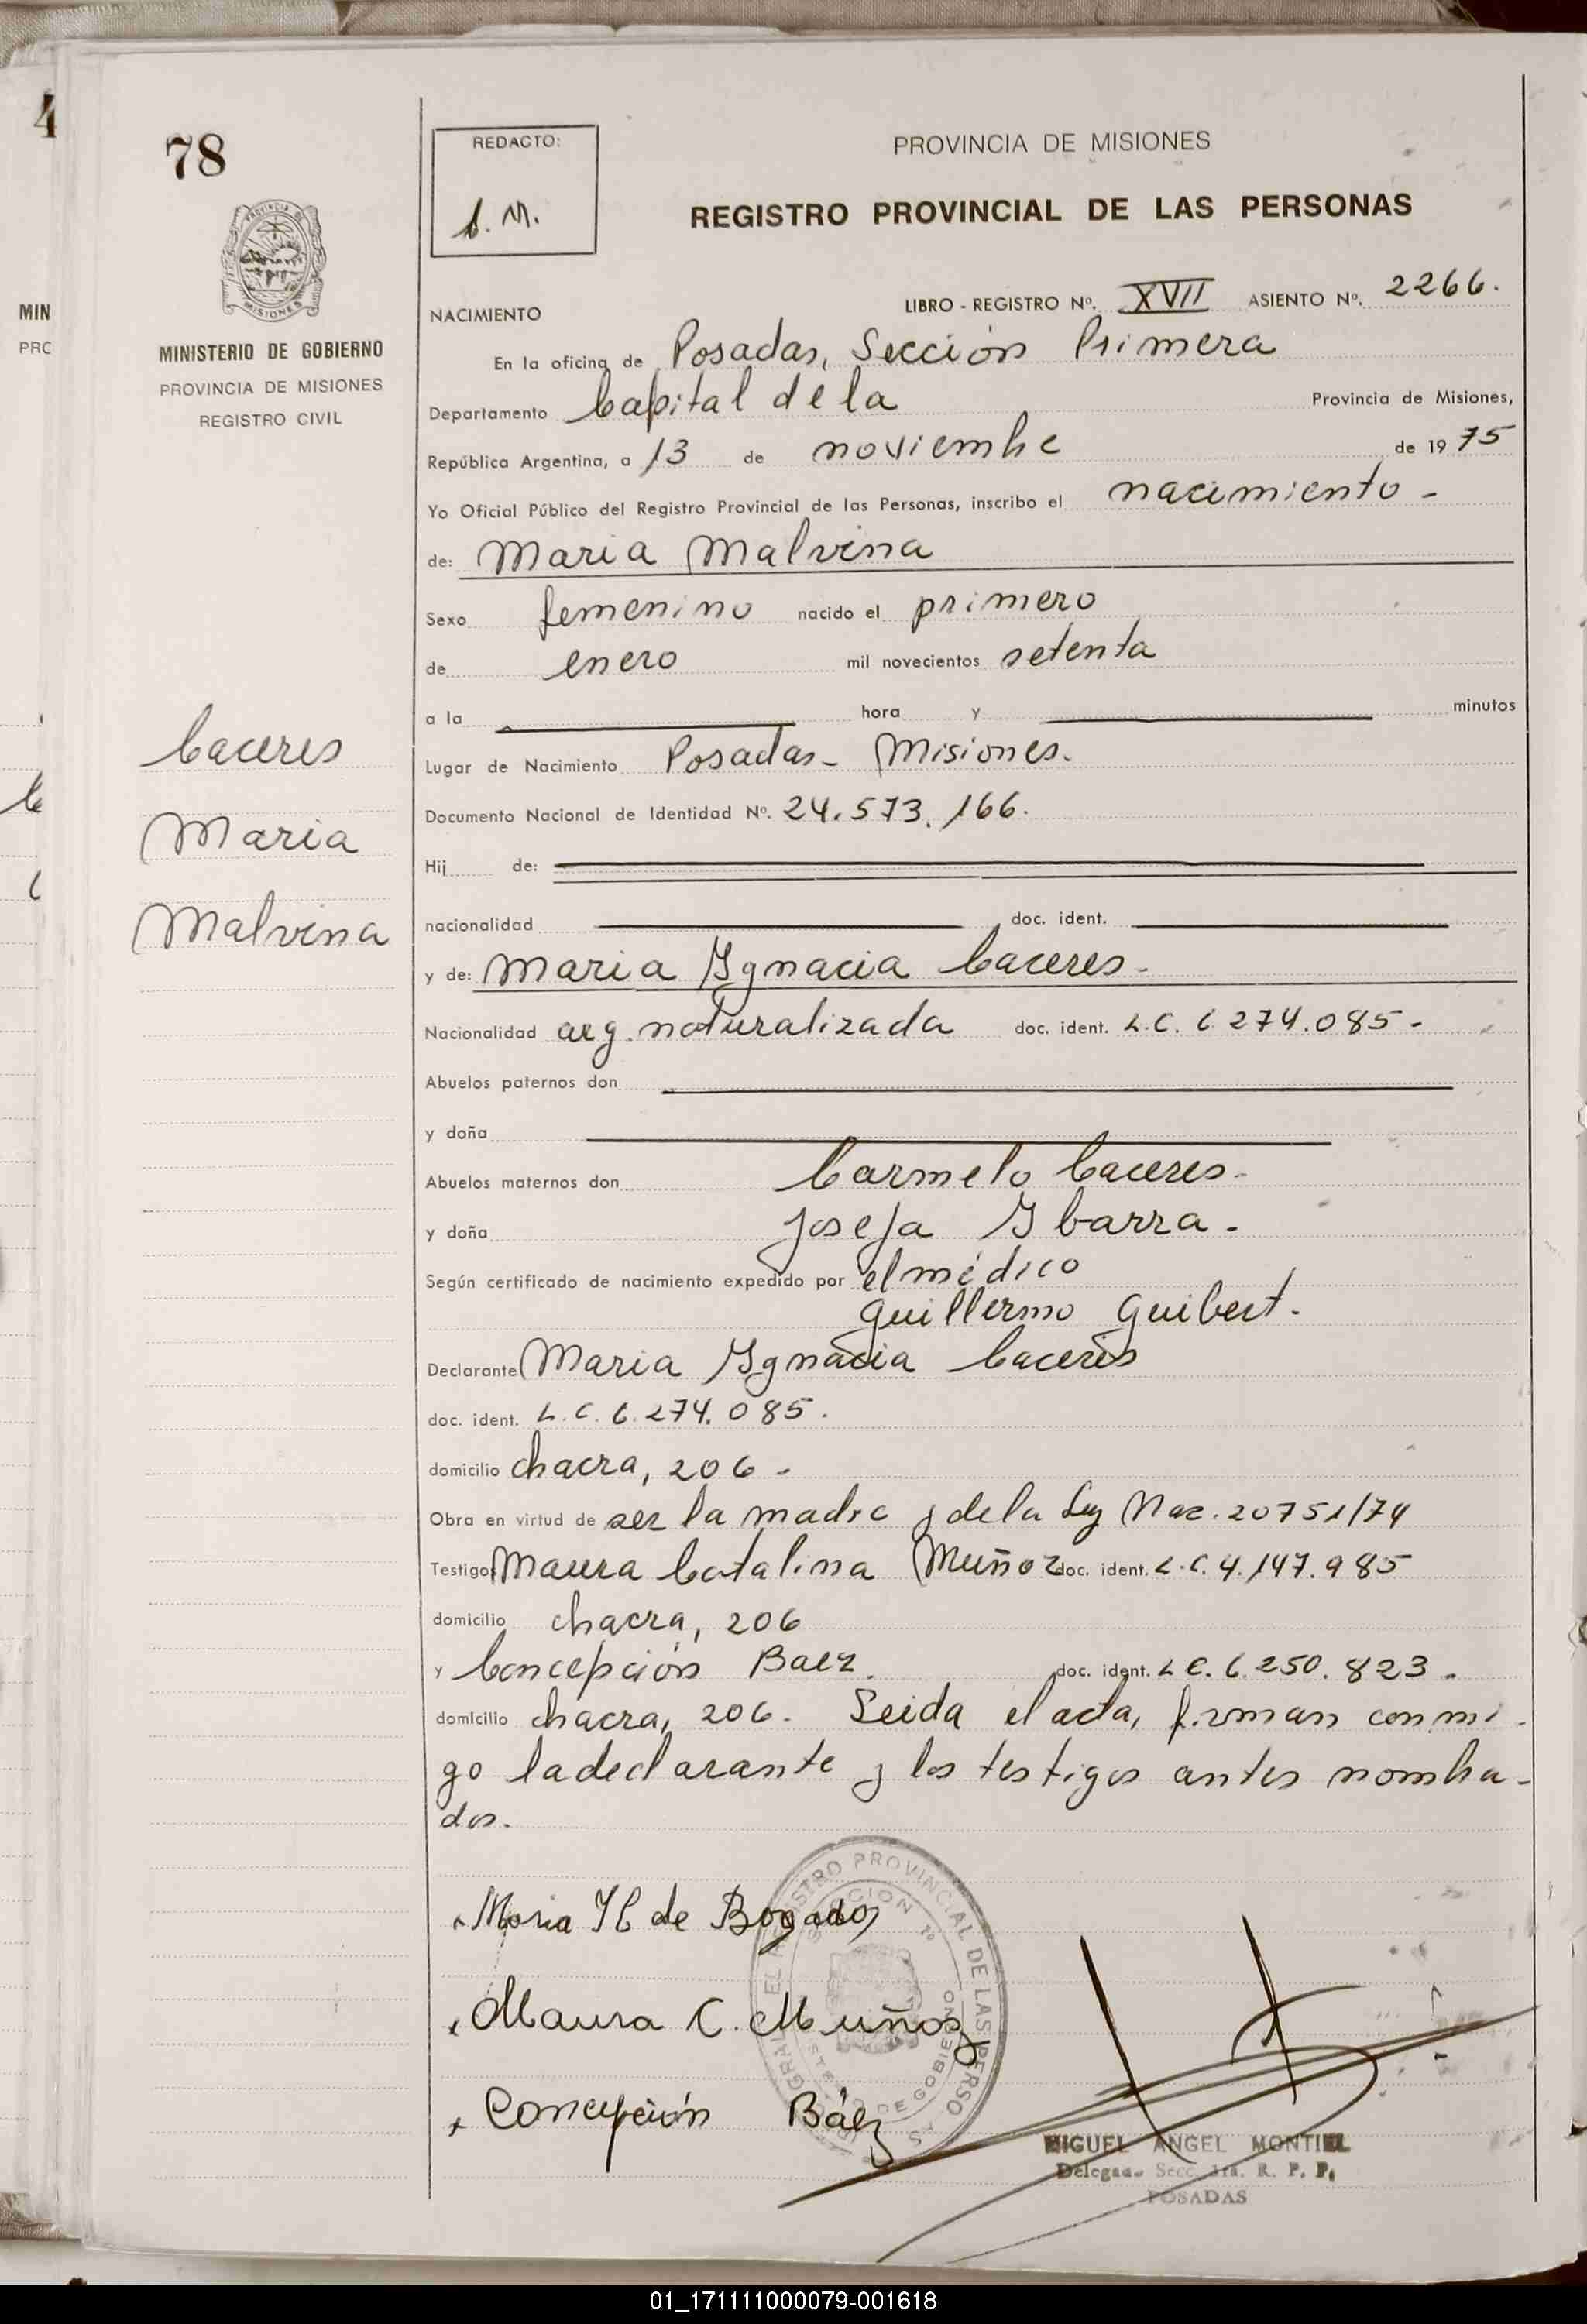 4
78
REDACTO:
C. M.
PROVINCIA DE MISIONES
REGISTRO PROVINCIAL DE LAS PERSONAS
MIN
PRC
PROVINCIA DE
MISIONES
MINISTERIO DE GOBIERNO
PROVINCIA DE MISIONES
REGISTRO CIVIL
NACIMIENTO LIBRO - REGISTRO Nº. XVII ASIENTO Nº. 2266.
En la oficina de Posadas, Sección Primera
Departamento Capital de la Provincia de Misiones,
República Argentina, a 13 de noviembre de 1975
Yo Oficial Público del Registro Provincial de las Personas, inscribo el nacimiento -
de: Maria Malvina
Sexo femenino nacido el primero
de enero mil novecientos setenta
a la hora y minutos
Caceres
Maria
Malvina
Lugar de Nacimiento Posadas - Misiones.
Documento Nacional de Identidad Nº. 24.573.166.
Hij de:
nacionalidad doc. ident.
y de: Maria Ygnacia Caceres -
Nacionalidad arg. naturalizada doc. ident. L.C. 6.274.085 -
Abuelos paternos don
y doña
Abuelos maternos don Carmelo Caceres -
y doña Josefa Ybarra -
Según certificado de nacimiento expedido por el médico
Guillermo Guibert.
Declarante Maria Ygnacia Caceres
doc. ident. L.C. 6.274.085.
domicilio chacra, 206 -
Obra en virtud de ser la madre y de la Ley Nac. 20751/74
Testigos Maura Catalina Muñoz doc. ident. L.C. 4.147.985
domicilio chacra, 206
y Concepción Baez. doc. ident. L.C. 6.250.823 -
domicilio chacra, 206. Leida el acta, firman conmi-
go la declarante y los testigos antes nombra-
dos.
Maria Y C de Bogado
Maura C. Muñoz
Concepción Báez
REGISTRO PROVINCIAL DE LAS PERSO AS
SECCION 1º
DE GOBIERNO
MIGUEL ANGEL MONTIEL
Delegado Secc. 1ra. R. P. P.
POSADAS
01_171111000079-001618